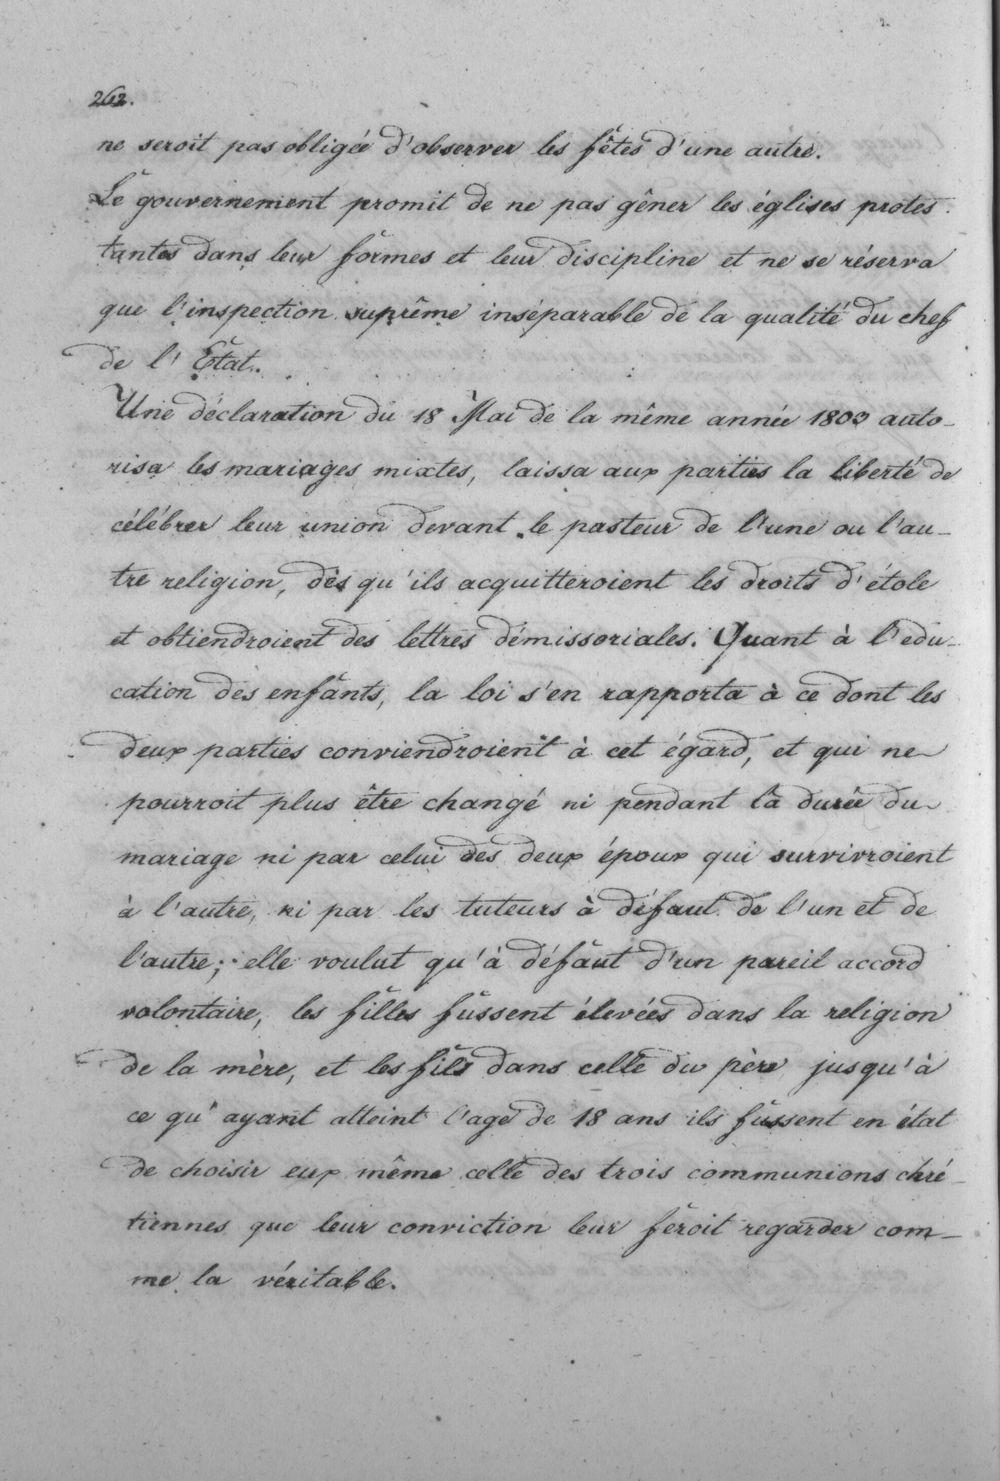 262.
ne seroit pas obligée d'observer les fêtes d'une autre.
Le gouvernement promit de ne pas gêner les églises protes
tantes dans leur formes et leur discipline et ne se réserva
que l'inspection suprême inséparable de la qualité du chef
de l'État.
Une déclaration du 18 Mai de la même année 1803 auto-
risa les mariages mixtes, laissa aux parties la liberté de
célébrer leur union devant le pasteur de l'une ou l'au-
tre religion, dès qu'ils acquitteroient les droits d'étole
et obtiendroient des lettres démissoriales. Quant à l'edu-
cation des enfants, la loi s'en rapporta à ce dont les
deux parties conviendroient à cet égard, et qui ne
pourroit plus être changé ni pendant la durée du
mariage ni par celui des deux époux qui survivroient
à l'autre, ni par les tuteurs à défaut de l'un et de
l'autre; elle voulut qu'à défaut d'un pareil accord
volontaire, les filles fussent élevées dans la religion
de la mère, et les fils dans celle du père jusqu'à
ce qu'ayant atteint l'age de 18 ans ils fussent en état
de choisir eux même celle des trois communions chré-
tiennes que leur conviction leur feroit regarder com-
me la véritable.